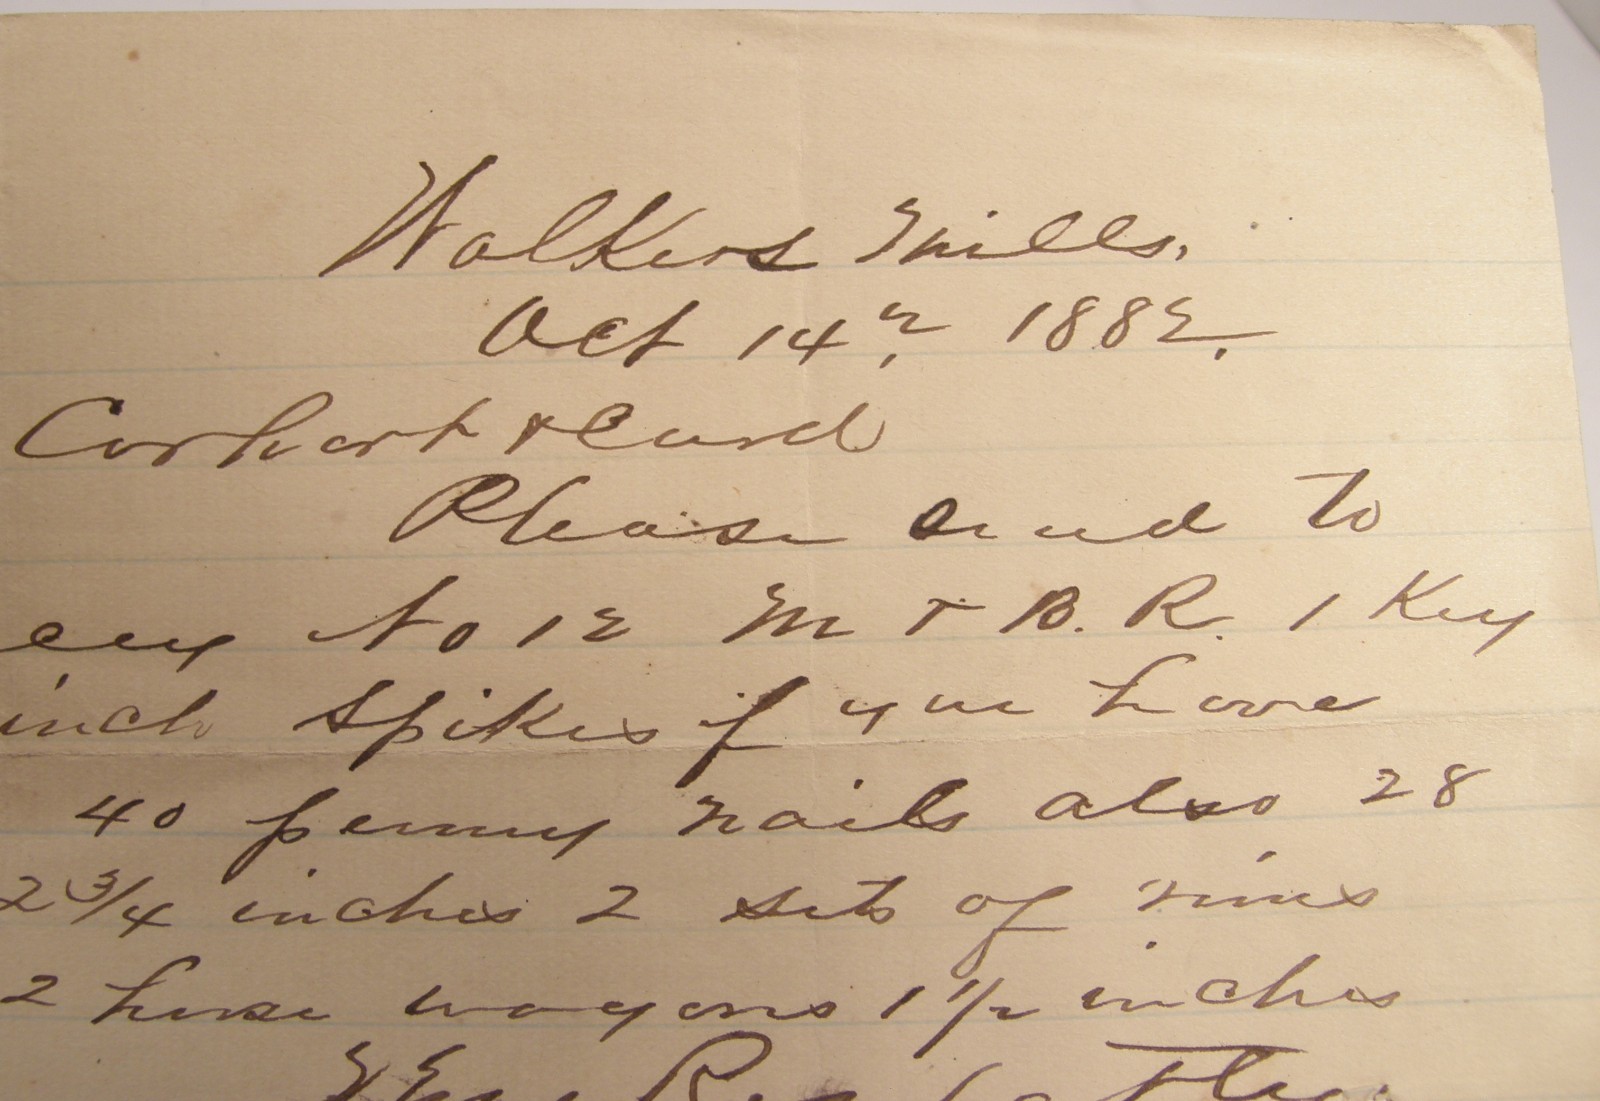 Walkers Mills.
Oct 14th, 1882.
Carhart & Curd
Please send to
No 12 M & B. R. R. 1 Keg
inch spikes if you have
40 penny nails also 28
2 3/4 inches 2 sets of rims
2 horse wagons 1 1/2 inches